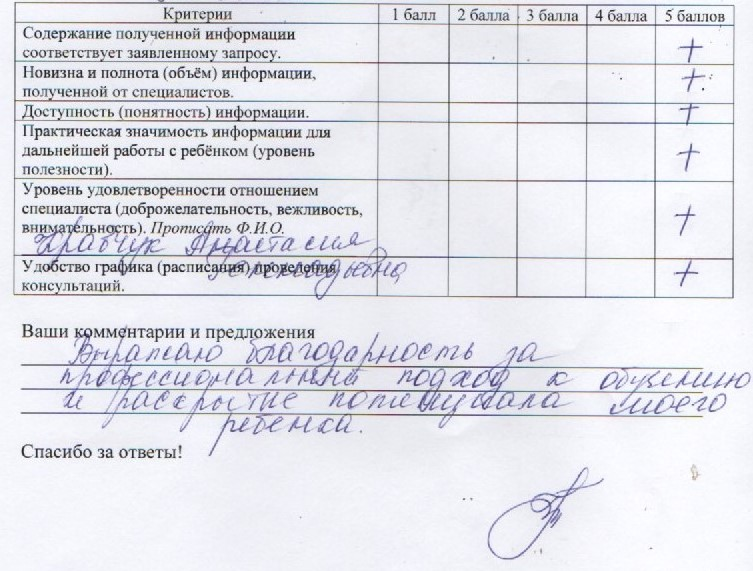 Критерии 1 балл 2 балла 3 балла 4 балла 5 баллов
Содержание полученной информации
соответствует заявленному запросу. +
Новизна и полнота (объём) информации,
полученной от специалистов. +
Доступность (понятность) информации. +
Практическая значимость информации для
дальнейшей работы с ребёнком (уровень
полезности). +
Уровень удовлетворенности отношением
специалиста (доброжелательность, вежливость,
внимательность). Прописать Ф.И.О. +
Кравчук Анастасия
Геннадьевна
Удобство графика (расписания) проведения
консультаций. +
Ваши комментарии и предложения
Выражаю благодарность за
профессиональный подход к обучению
и раскрытие потенциала моего
ребенка.
Спасибо за ответы!